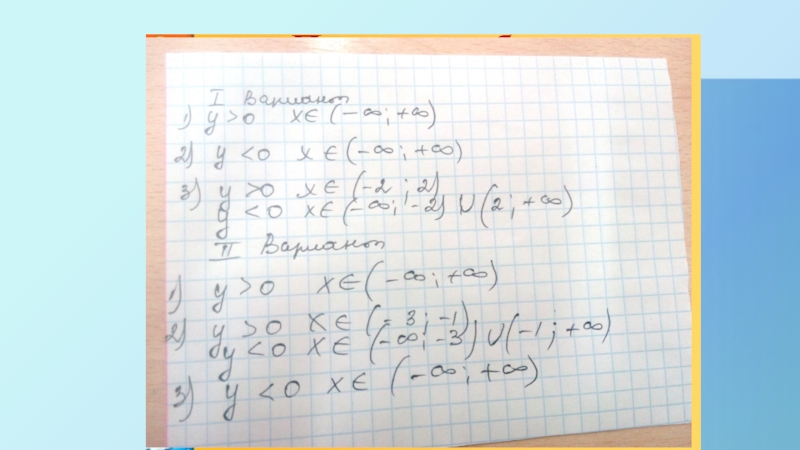 I Вариант
1) y > 0 x ∈ (-∞; +∞)
2) y < 0 x ∈ (-∞; +∞)
3) y > 0 x ∈ (-2; 2)
y < 0 x ∈ (-∞; -2) ∪ (2; +∞)
II Вариант
1) y > 0 x ∈ (-∞; +∞)
2) y > 0 x ∈ (-3; -1)
y < 0 x ∈ (-∞; -3) ∪ (-1; +∞)
3) y < 0 x ∈ (-∞; +∞)